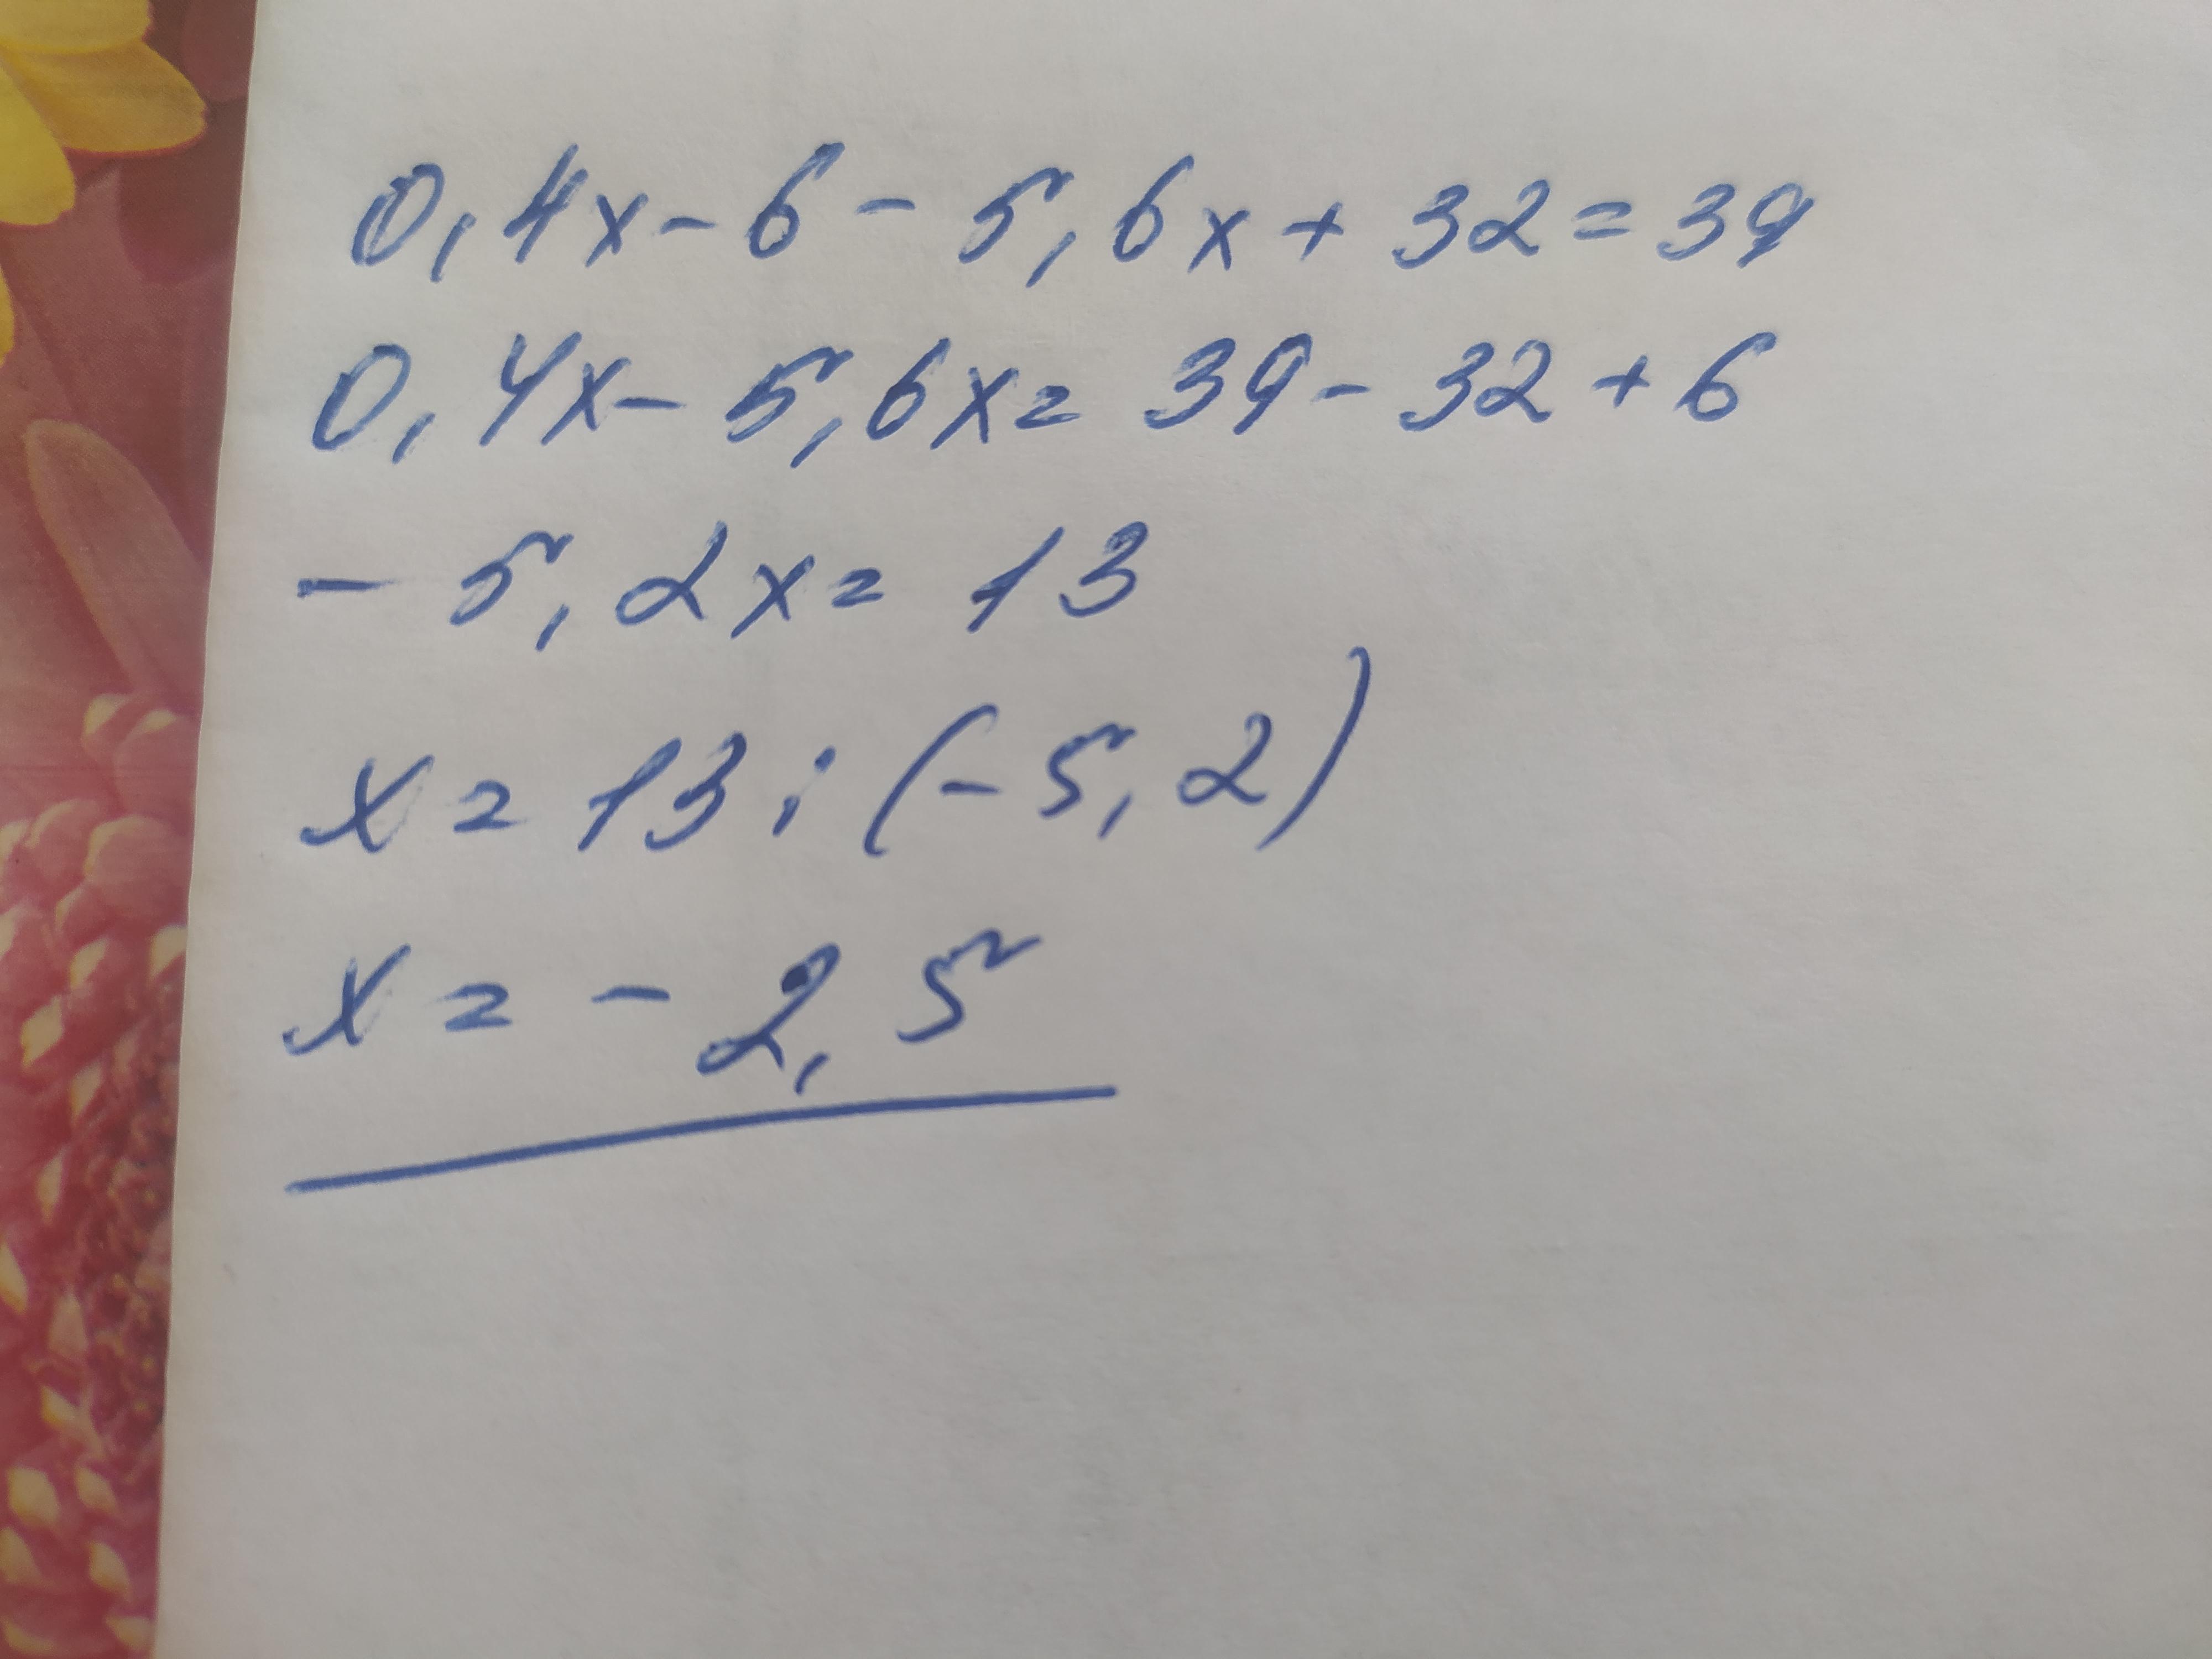 0,4x-6-5,6x+32=39
0,4x-5,6x=39-32+6
-5,2x=13
x=13:(-5,2)
x=-2,5